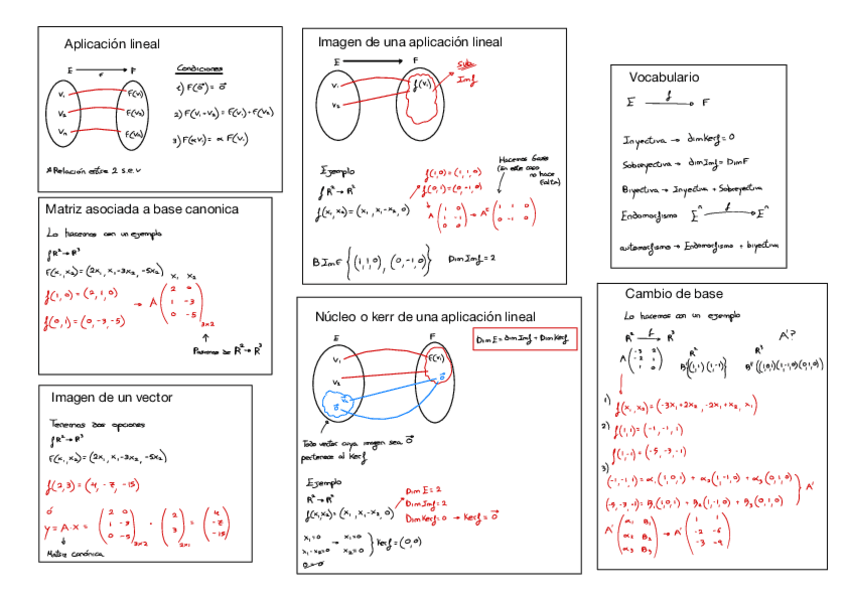 Aplicación lineal
E → F
F
V₁ F(V₁)
V₂ F(V₂)
Vₙ F(Vₙ)
Condiciones
1) F(0⃗) = 0⃗
2) F(V₁+V₂) = F(V₁)+F(V₂)
3) F(αV₁) = α F(V₁)
*Relación entre 2 s.e.v
Matriz asociada a base canonica
Lo hacemos con un ejemplo
f R² → R³
F(x₁,x₂) = (2x₁, x₁-3x₂, -5x₂)
x₁ x₂
f(1,0) = (2,1,0)
f(0,1) = (0,-3,-5)
→ A
2 0
1 -3
0 -5
3x2
Pasamos de R² → R³
Imagen de un vector
Tenemos dos opciones
f R² → R³
F(x₁,x₂) = (2x₁, x₁-3x₂, -5x₂)
f(2,3) = (4, -7, -15)
ó
y = A·x = (2 0 / 1 -3 / 0 -5) 3x2 · (2 / 3) 2x1 = (4 / -7 / -15)
Matriz canónica
Imagen de una aplicación lineal
E → F
V₁
V₂
f(V₁)
Sub
Imf
Ejemplo
f R² → R²
f(x₁,x₂) = (x₁, x₁-x₂, 0)
f(1,0) = (1,1,0)
f(0,1) = (0,-1,0)
Hacemos Gauss
(En este caso
no hace
falta)
A (1 0 / 1 -1 / 0 0) → Aᵗ (1 1 0 / 0 -1 0)
B ImF {(1,1,0), (0,-1,0)} Dim Imf = 2
Núcleo o kerr de una aplicación lineal
E F
Dim E = dim Imf + Dim Kerf
V₁ F(V₁)
V₂
Vₙ 0⃗
0⃗
Todo vector cuya imagen sea 0⃗
pertenece al Kerf
Ejemplo
R² → R³
f(x₁,x₂) = (x₁, x₁-x₂, 0)
Dim E = 2
Dim Imf = 2
Dim Kerf = 0 → Kerf = 0⃗
x₁=0 → x₁=0
x₁-x₂=0 x₂=0
0=0
} Kerf = (0,0)
Vocabulario
E f → F
Inyectiva → dim Kerf = 0
Sobreyectiva → dim Imf = Dim F
Biyectiva → Inyectiva + Sobreyectiva
Endomorfismo Eⁿ f → Eⁿ
automorfismo → Endomorfismo + biyectiva
Cambio de base
Lo hacemos con un ejemplo
R² f → R³ A'?
A (-3 2 / -2 1 / 1 0)
R²
B {(1,1) (1,-1)}
R³
B' {(1,0,1) (1,-1,0) (0,1,0)}
1) f(x₁,x₂) = (-3x₁+2x₂, -2x₁+x₂, x₁)
2) f(1,1) = (-1,-1,1)
f(1,-1) = (-5,-3,-1)
3)
(-1,-1,1) = α₁(1,0,1) + α₂(1,-1,0) + α₃(0,1,0)
(-5,-3,-1) = B₁(1,0,1) + B₂(1,-1,0) + B₃(0,1,0)
} A'
A' (α₁ B₁ / α₂ B₂ / α₃ B₃) → A' (1 1 / -2 -6 / -3 -9)